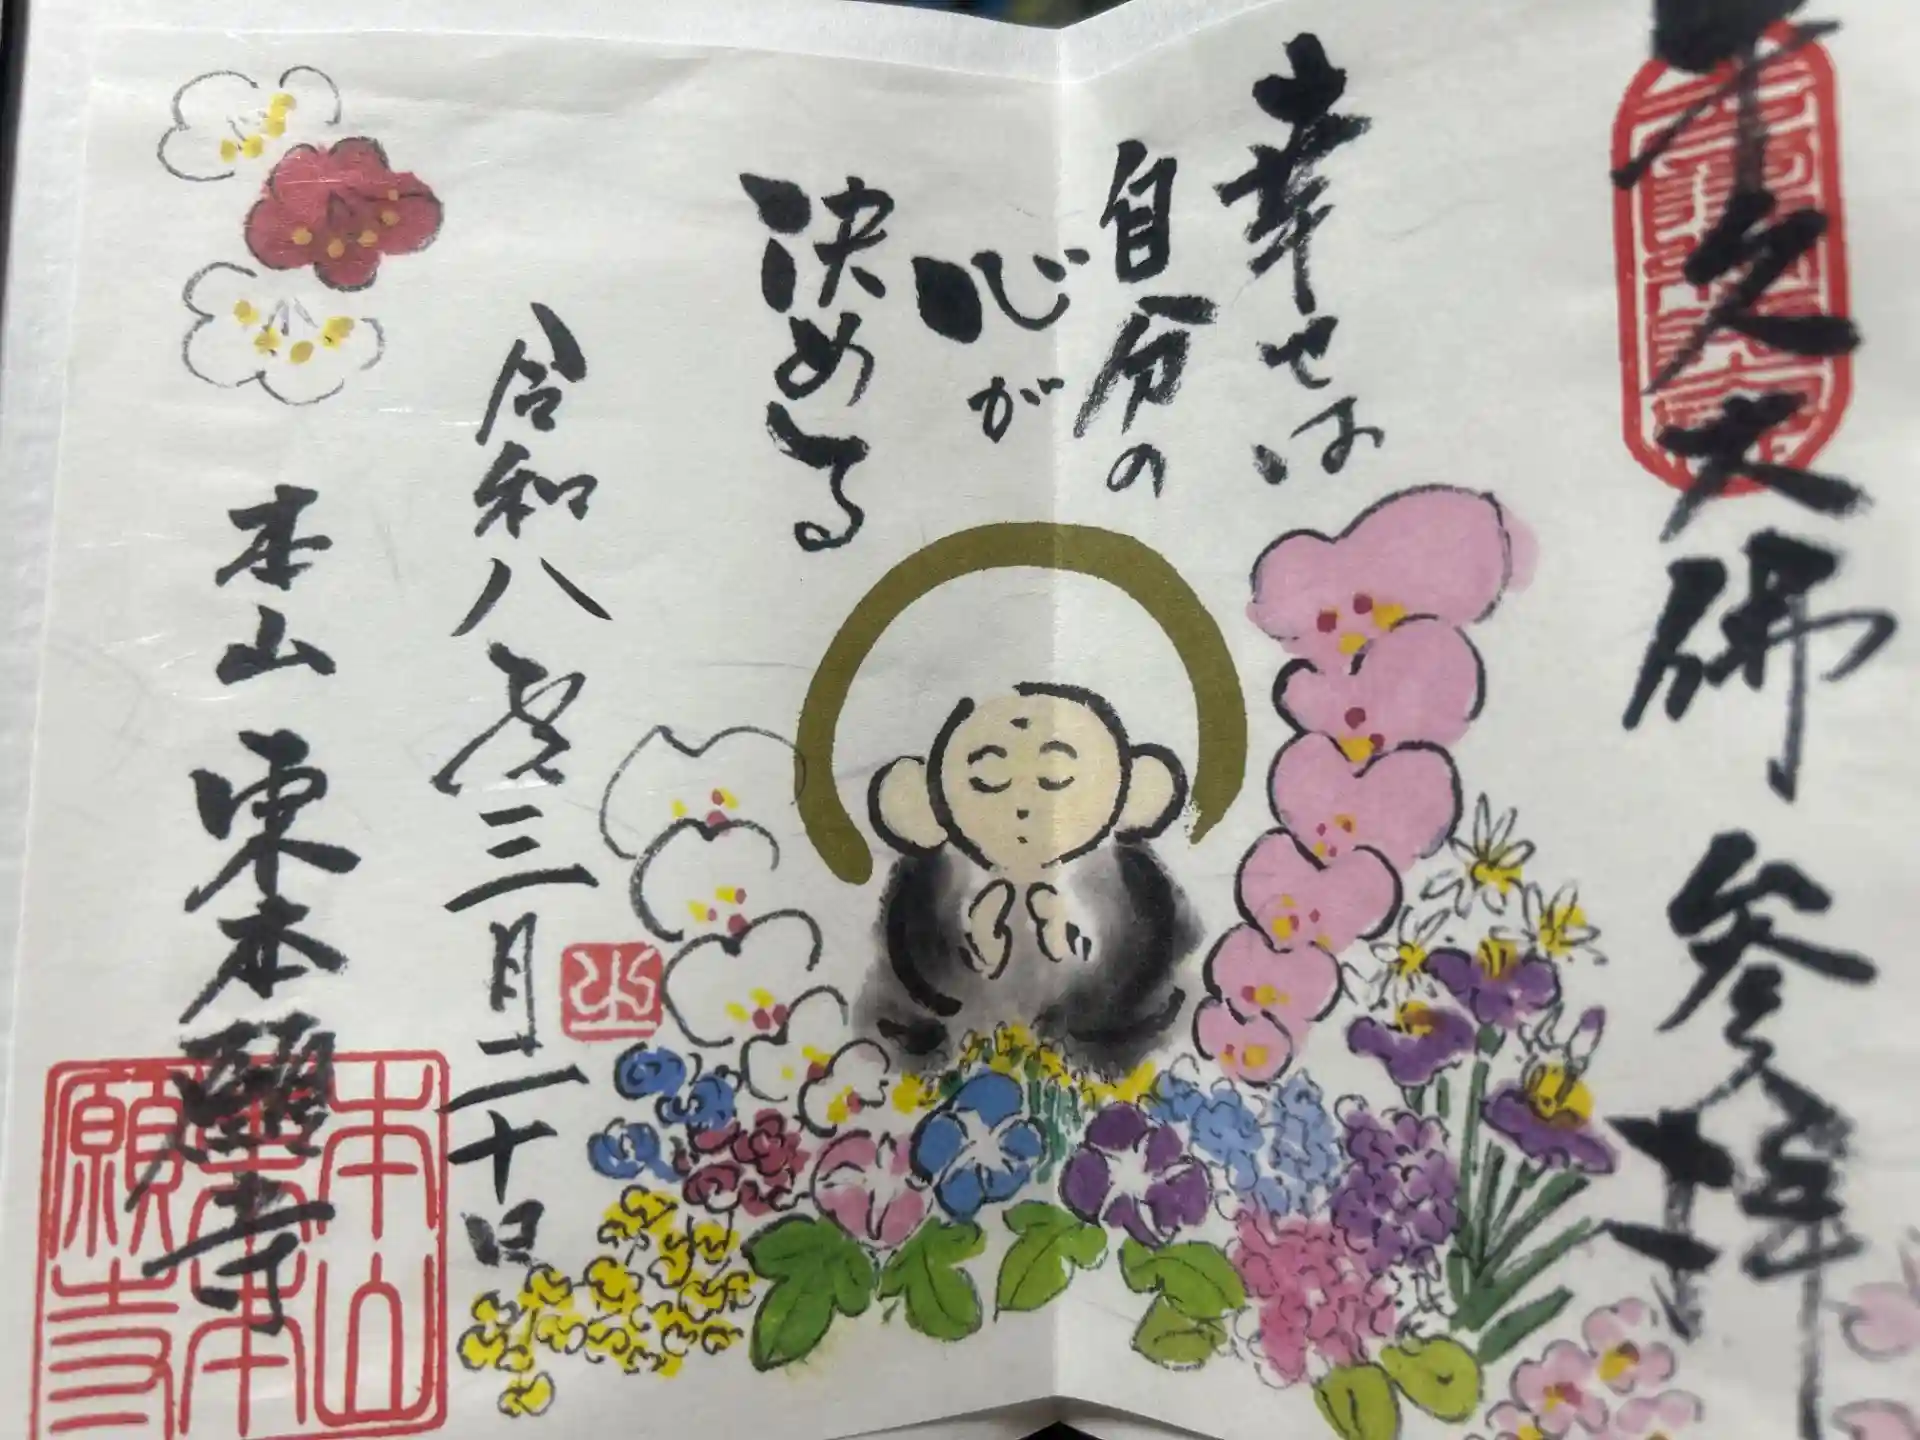 牛久大佛 参拝
幸せは
自分の
心が
決める
令和八年三月二十日
本山 東本願寺
本山
東本
願寺